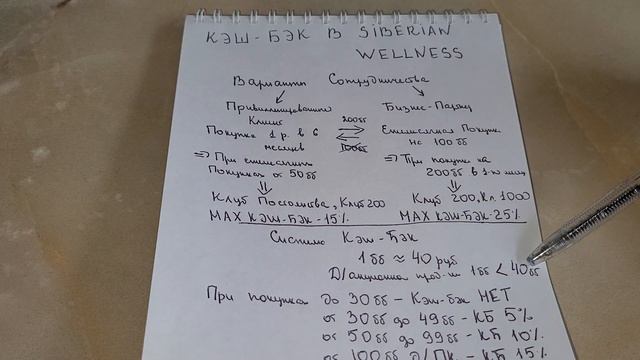 КЭШ-БЭК В SIBERIAN
WELLNESS
Варианты Сотрудничества
Привилегированный Бизнес-Партнёр
Клиент 200бб
Покупка 1 р. в 6 Ежемесячная Покупка
месяцев 100бб на 100 бб
=> При ежемесячных => При покупке на
Покупках от 50 бб 200бб в 1-ый месяц
Клуб Постоянства, Клуб 200 Клуб 200, Кл. 1000
MAX КЭШ-БЭК-15% MAX КЭШ-БЭК-25%
Система Кэш-Бэк
1 бб ≈ 40 руб
D/акционная прод-ии 1бб < 40бб
При покупках до 30бб - Кэш-бэк НЕТ
от 30бб до 49бб - КБ 5%
от 50бб до 99бб - КБ 10%
от 100бб D/ПК - КБ 15%